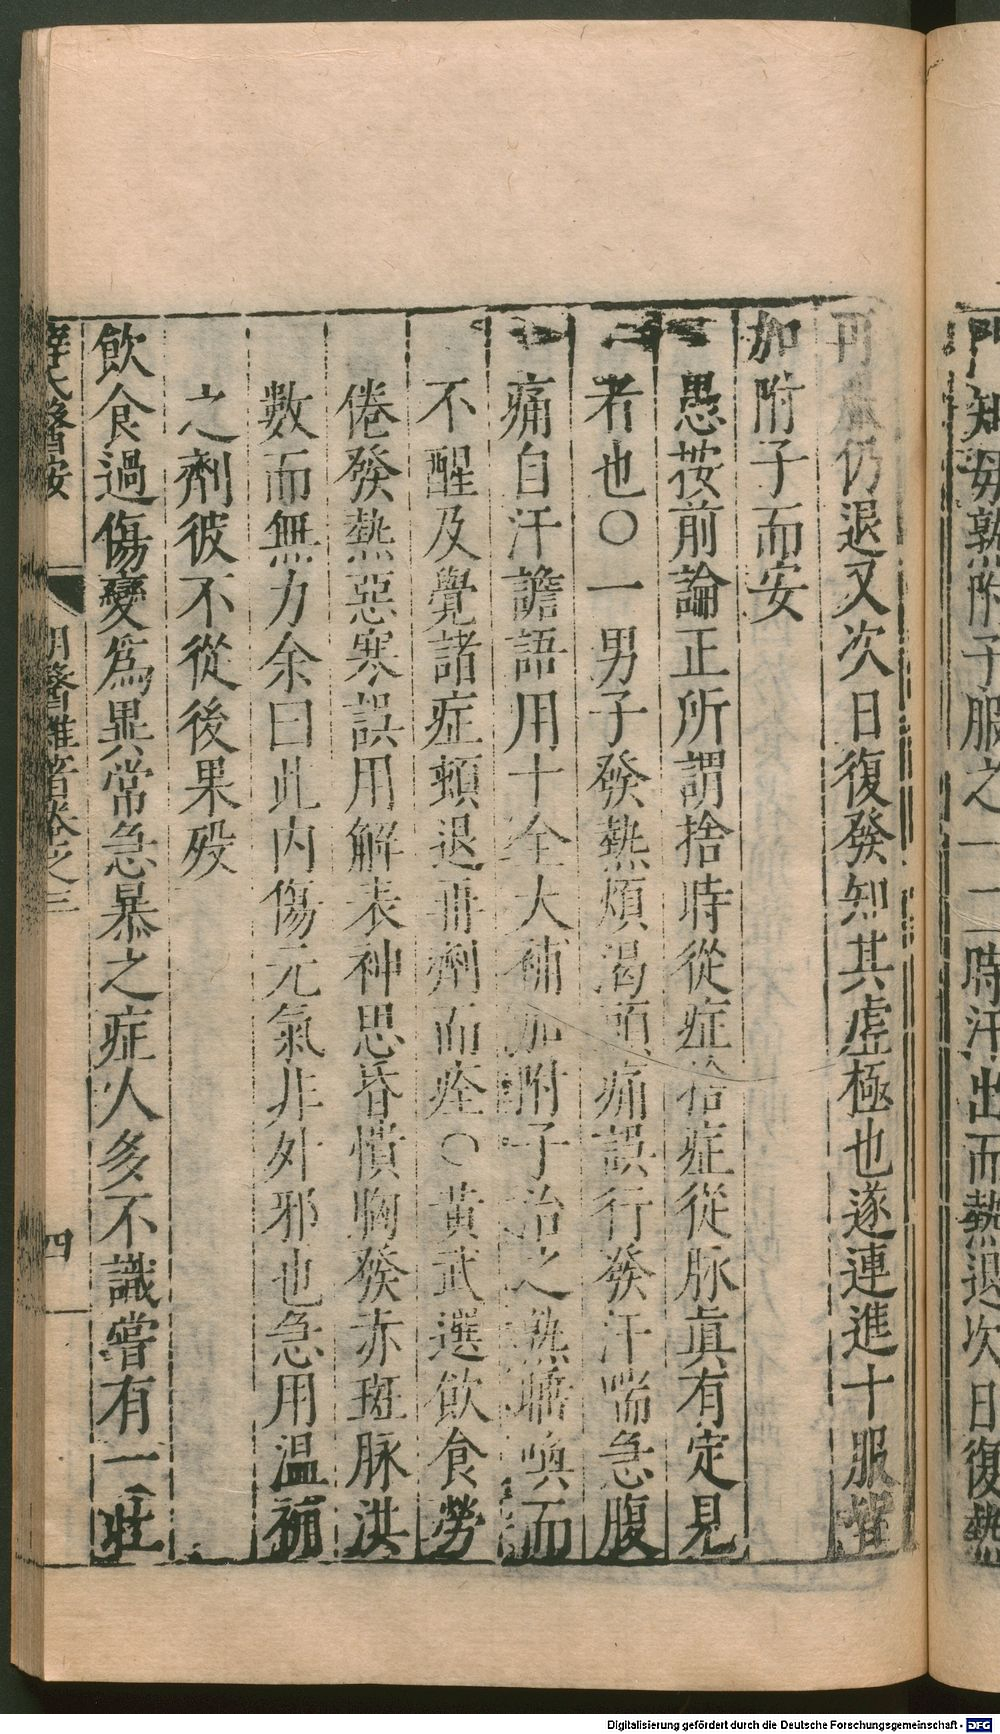 知母熟附子服之一二時汗出而熱退次日復熱
可　仍退又次日復發知其虛極也遂連進十服
加附子而安
愚按前論正所謂捨時從症捨症從脉眞有定見
者也〇一男子發熱煩渴頭痛誤行發汗喘急腹
痛自汗譫語用十全大補加附子治之熟睡喚而
不醒及覺諸症頓退再劑而痊〇黃武選飲食勞
倦發熱惡寒誤用解表神思昏憒胸發赤斑脉洪
數而無力余曰此內傷元氣非外邪也急用溫補
之劑彼不從後果殁
飲食過傷變爲異常急暴之症人多不識嘗有一壯
薛氏醫按　明醫雜著卷之三　四
Digitalisierung gefördert durch die Deutsche Forschungsgemeinschaft - DFG